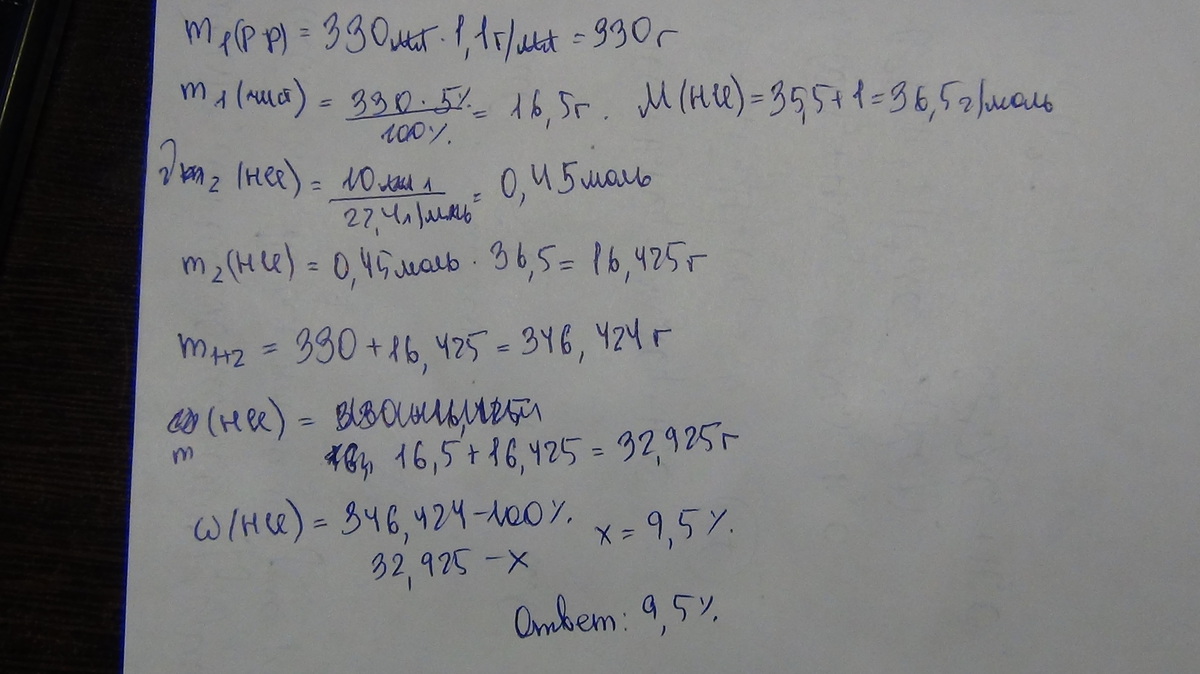 m₁(р р) = 330мл · 1,1г/мл = 330г
m₁(чист) = 330 · 5% / 100% = 16,5г. M(HCl) = 35,5 + 1 = 36,5г/моль
m₂(HCl) = 10 / 22,4л/моль = 0,45моль
m₂(HCl) = 0,45моль · 36,5 = 16,425г
m = 330 + 16,425 = 346,424г
(HCl) =
m 16,5 + 16,425 = 32,925г
ω(HCl) = 346,424 – 100% x = 9,5%.
32,925 – x
Ответ: 9,5%.